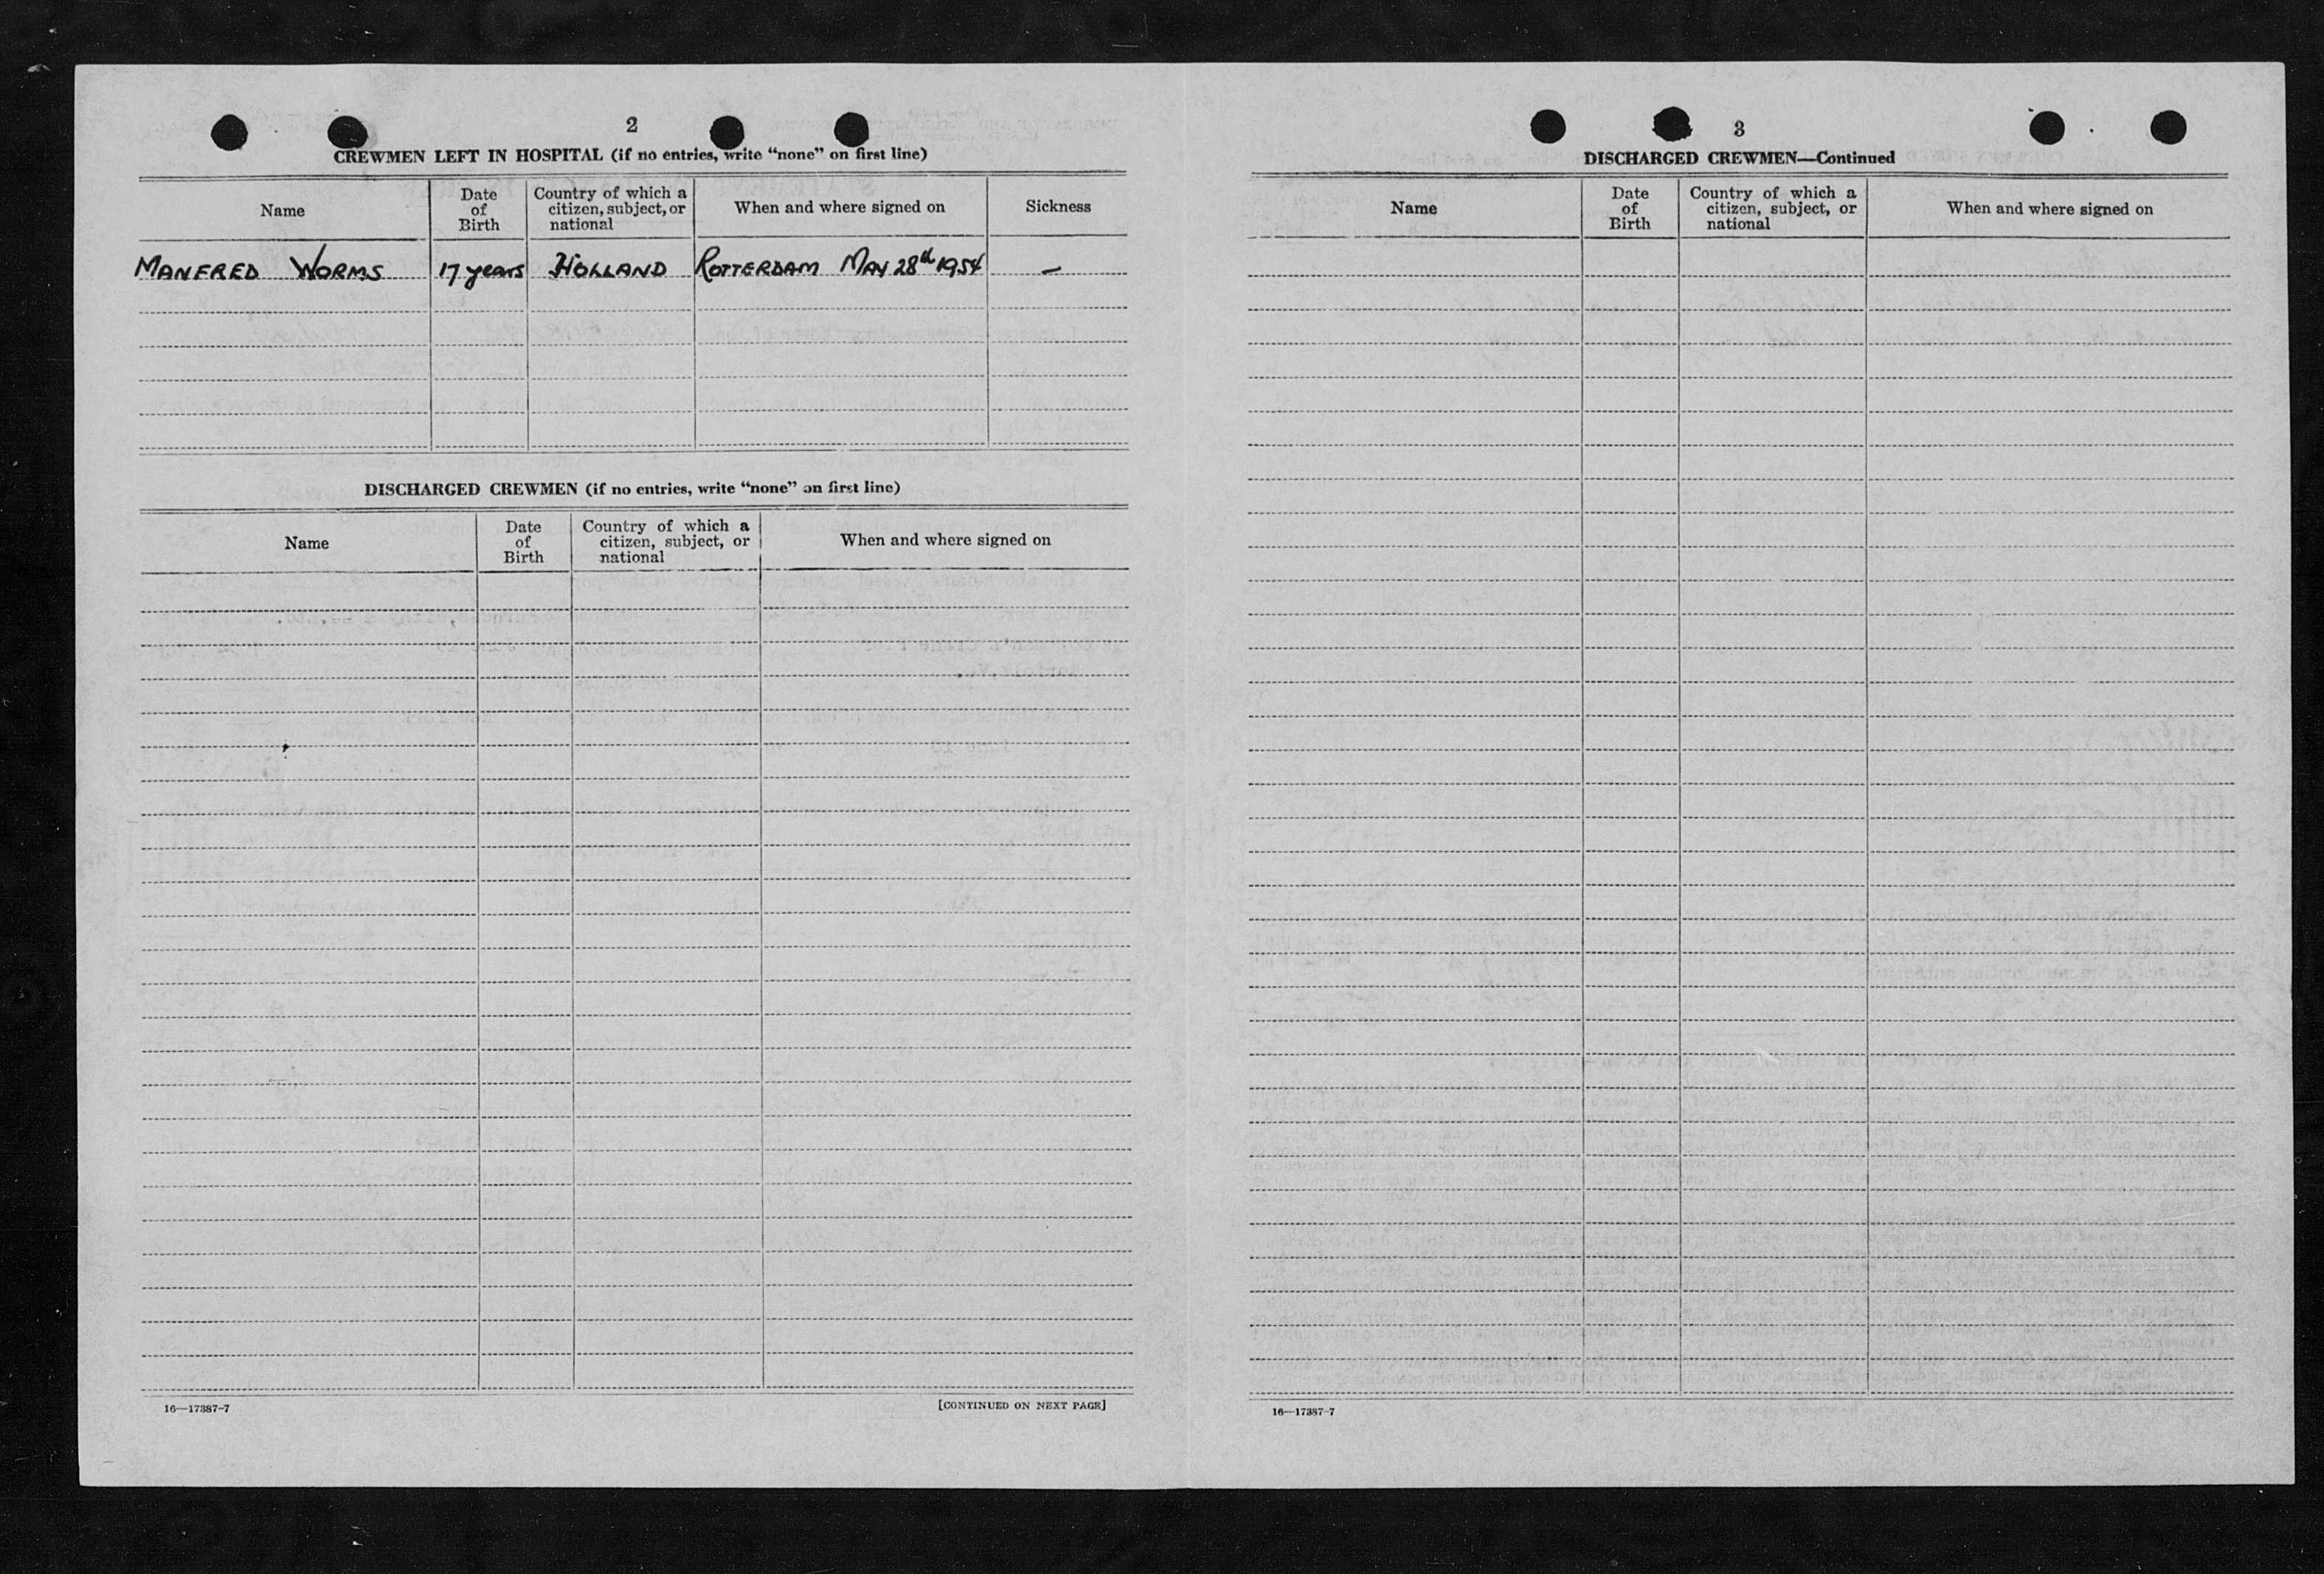 2
CREWMEN LEFT IN HOSPITAL (if no entries, write “none” on first line)
Name
Date
of
Birth
Country of which a
citizen, subject, or
national
When and where signed on
Sickness
MANFRED WORMS 17 years HOLLAND ROTTERDAM MAY 28th 1954 —
DISCHARGED CREWMEN (if no entries, write “none” on first line)
Name
Date
of
Birth
Country of which a
citizen, subject, or
national
When and where signed on
16—17387-7
[CONTINUED ON NEXT PAGE]
3
DISCHARGED CREWMEN—Continued
Name
Date
of
Birth
Country of which a
citizen, subject, or
national
When and where signed on
16—17387-7